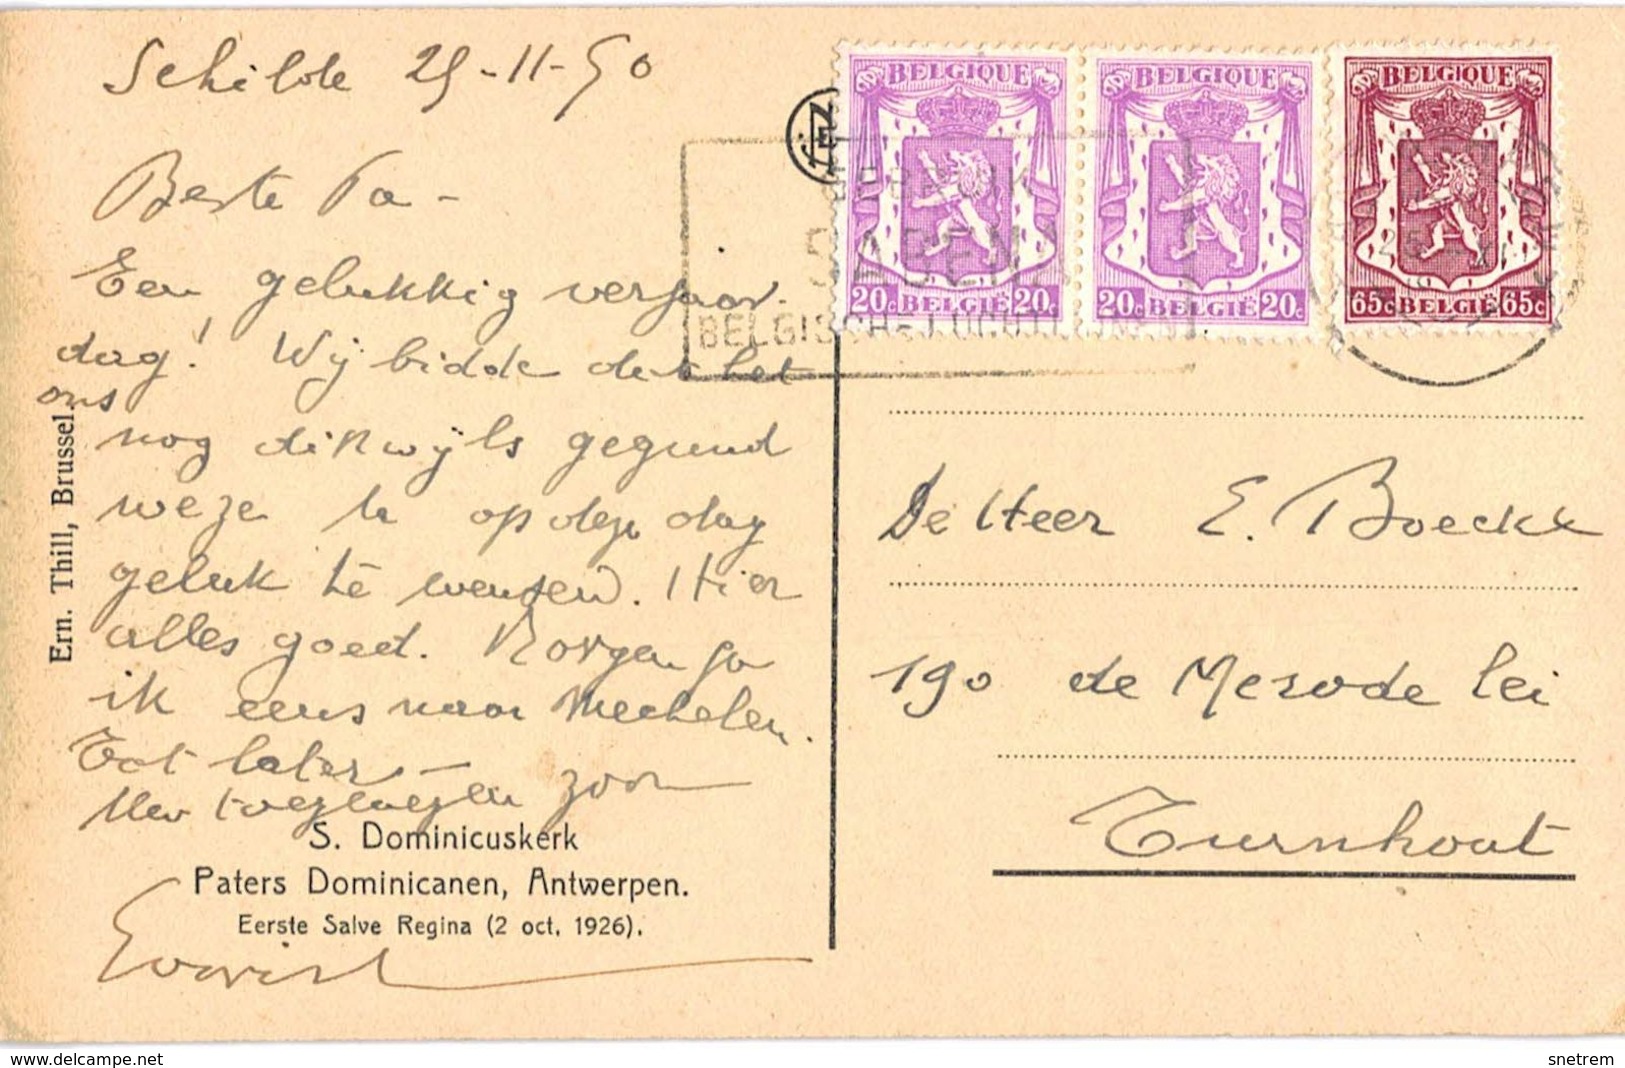 Schilde 25-11-50
Beste Pa -
Een gelukkig verjaar-
dag! Wij bidden dat het
ons
nog dikwijls gegund
weze u op dezen dag
geluk te wensen. Hier
alles goed. Morgen ga
ik eens naar Mechelen.
Tot later -
Uw toegenegen zoon
S. Dominicuskerk
Paters Dominicanen, Antwerpen.
Eerste Salve Regina (2 oct. 1926).
Ern. Thill, Brussel.
BELGIQUE
20c BELGIË 20c
BELGIQUE
20c BELGIË 20c
BELGIQUE
65c BELGIË 65c
GEBRUIK
SABENA
BELGISCHE LUCHTLIJNEN
De Heer E. Boeckx
190 de Merode lei
Turnhout
delcampe.net
snetrem